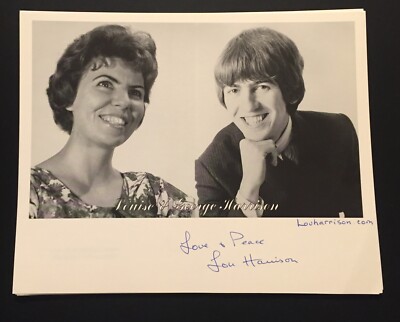 Louise & George Harrison
Louharrison.com
Love & Peace
Lou Harrison